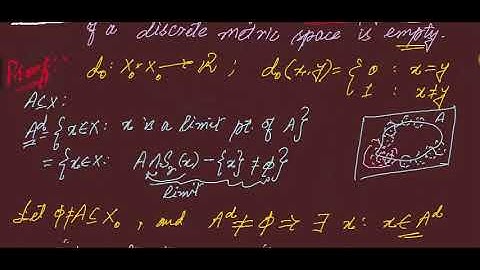 of a discrete metric space is empty.
Proof: d₀: X₀×X₀ → R ; d₀(x,y) = { 0 : x=y
1 : x≠y
A⊆X:
Aᵈ = {x∈X: x is a limit pt. of A}
= {x∈X: A∩Sᵣ(x) - {x} ≠ ϕ}
limit
A
Let ϕ≠A⊆X₀ , and Aᵈ≠ϕ ⇒ ∃ x: x∈Aᵈ